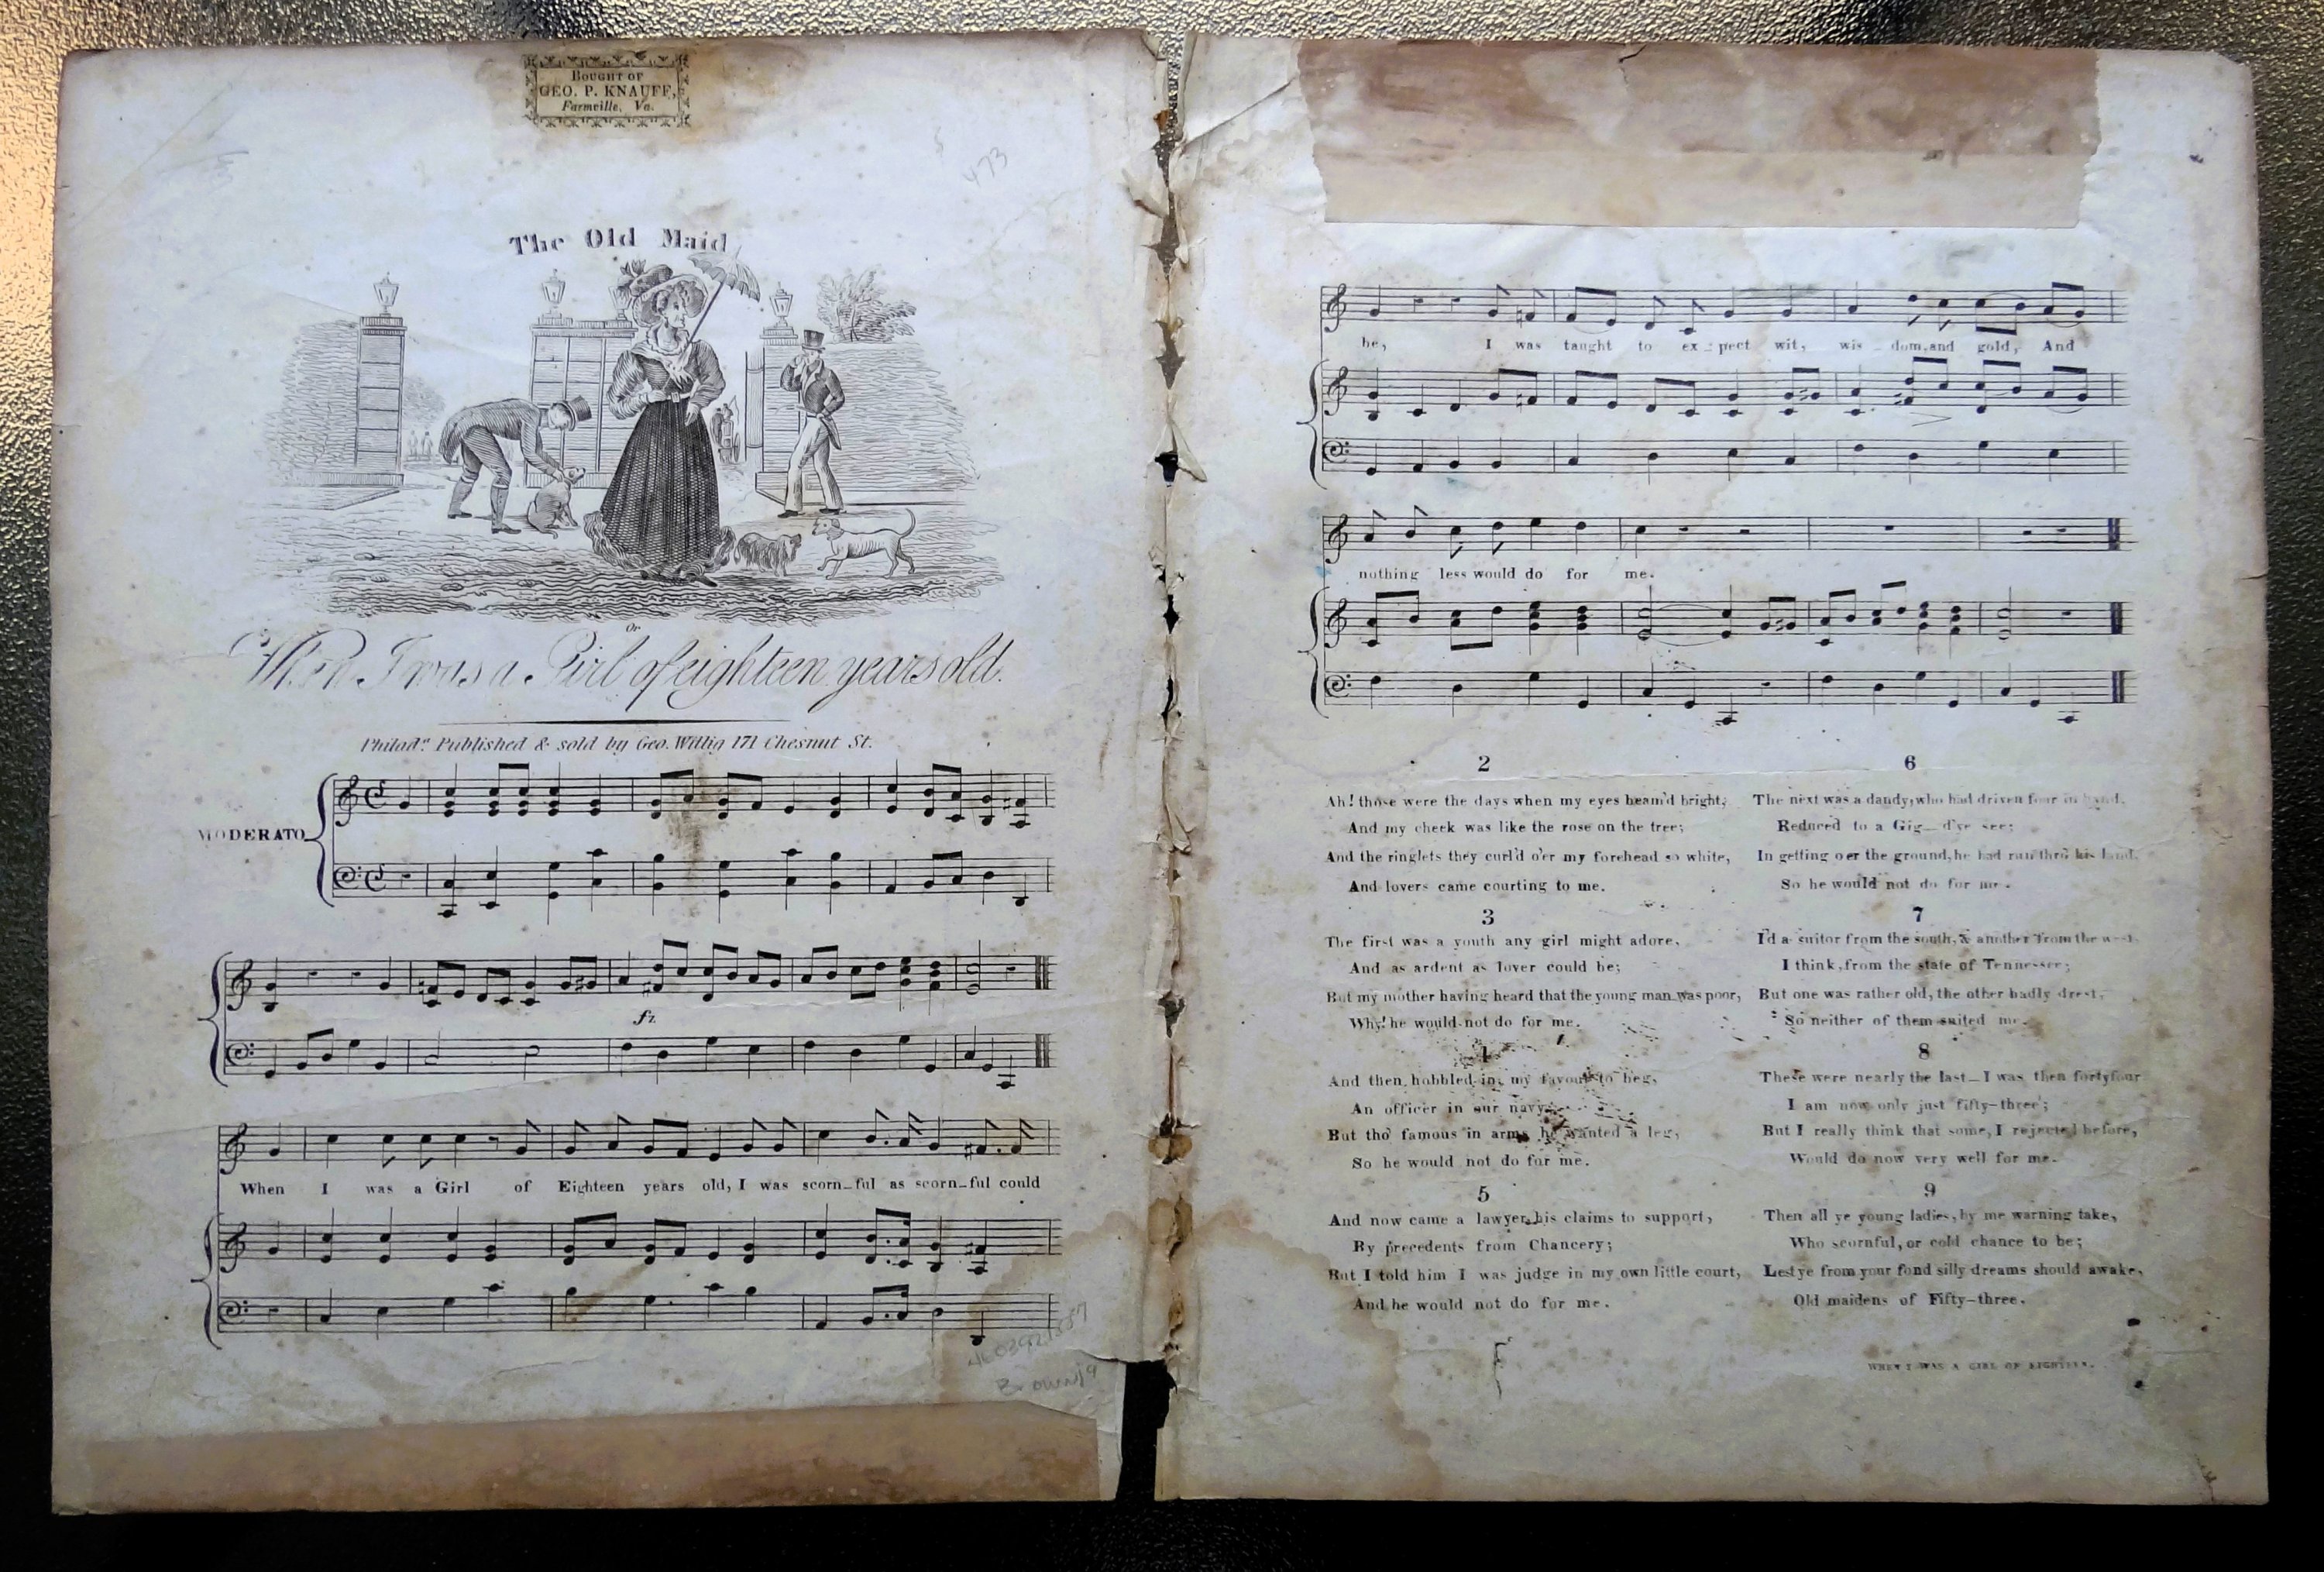 BOUGHT OF
GEO. P. KNAUFF,
Farmville, Va.
473
The Old Maid
Or
When I was a Girl of eighteen years old.
Philad.ª Published & sold by Geo. Willig 171 Chesnut St.
MODERATO
fz
When I was a Girl of Eighteen years old, I was scorn_ful as scorn_ful could
Brown 19
be, I was taught to ex_pect wit, wis_dom, and gold, And
nothing less would do for me.
2
Ah! those were the days when my eyes beam'd bright,
And my cheek was like the rose on the tree;
And the ringlets they curl'd o'er my forehead so white,
And lovers came courting to me.
3
The first was a youth any girl might adore,
And as ardent as lover could be;
But my mother having heard that the young man was poor,
Why! he would not do for me.
4
And then hobbled in, my favour to beg,
An officer in our navy;
But tho' famous in arms, he wanted a leg,
So he would not do for me.
5
And now came a lawyer, his claims to support,
By precedents from Chancery;
But I told him I was judge in my own little court,
And he would not do for me.
6
The next was a dandy, who had driven four in hand,
Reduced to a Gig_d'ye see;
In getting o'er the ground, he had run thro' his land,
So he would not do for me.
7
I'd a suitor from the south, & another from the west,
I think, from the state of Tennessee;
But one was rather old, the other badly drest,
So neither of them suited me.
8
These were nearly the last_I was then fortyfour
I am now only just fifty-three;
But I really think that some, I rejected before,
Would do now very well for me.
9
Then all ye young ladies, by me warning take,
Who scornful, or cold chance to be;
Lest ye from your fond silly dreams should awake,
Old maidens of Fifty-three.
WHEN I WAS A GIRL OF EIGHTEEN.